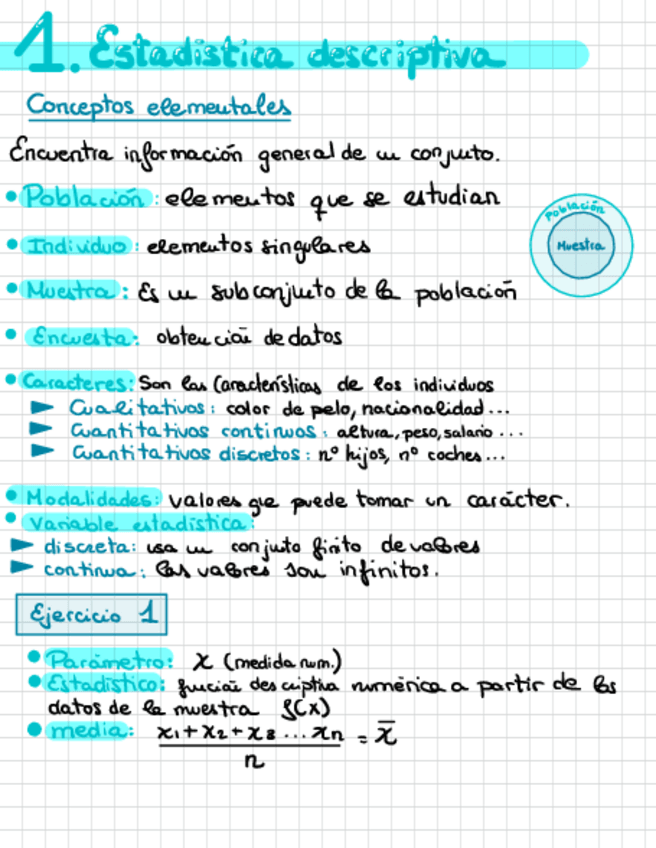 1. Estadística descriptiva
Conceptos elementales
Encuentra información general de un conjunto.
• Población: elementos que se estudian
• Individuo: elementos singulares
• Muestra: Es un subconjunto de la población
Población
Muestra
• Encuesta: obtención de datos
• Caracteres: Son las características de los individuos
► Cualitativos: color de pelo, nacionalidad...
► Cuantitativos continuos: altura, peso, salario...
► Cuantitativos discretos: nº hijos, nº coches...
• Modalidades: valores que puede tomar un carácter.
• Variable estadística:
► discreta: usa un conjunto finito de valores
► continua: las valores son infinitos.
Ejercicio 1
• Parámetro: x (medida num.)
• Estadístico: función descriptiva numérica a partir de los
datos de la muestra f(x)
• media: x₁ + x₂ + x₃ ... xn = x̄
n